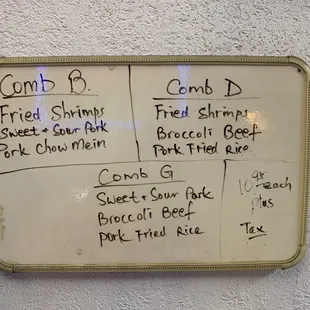 Comb B.
Fried Shrimps
Sweet + Sour Pork
Pork Chow Mein
Comb D
Fried Shrimps
Broccoli Beef
Pork Fried Rice
Comb G
Sweet + Sour Pork
Broccoli Beef
Pork Fried Rice
each
plus
Tax